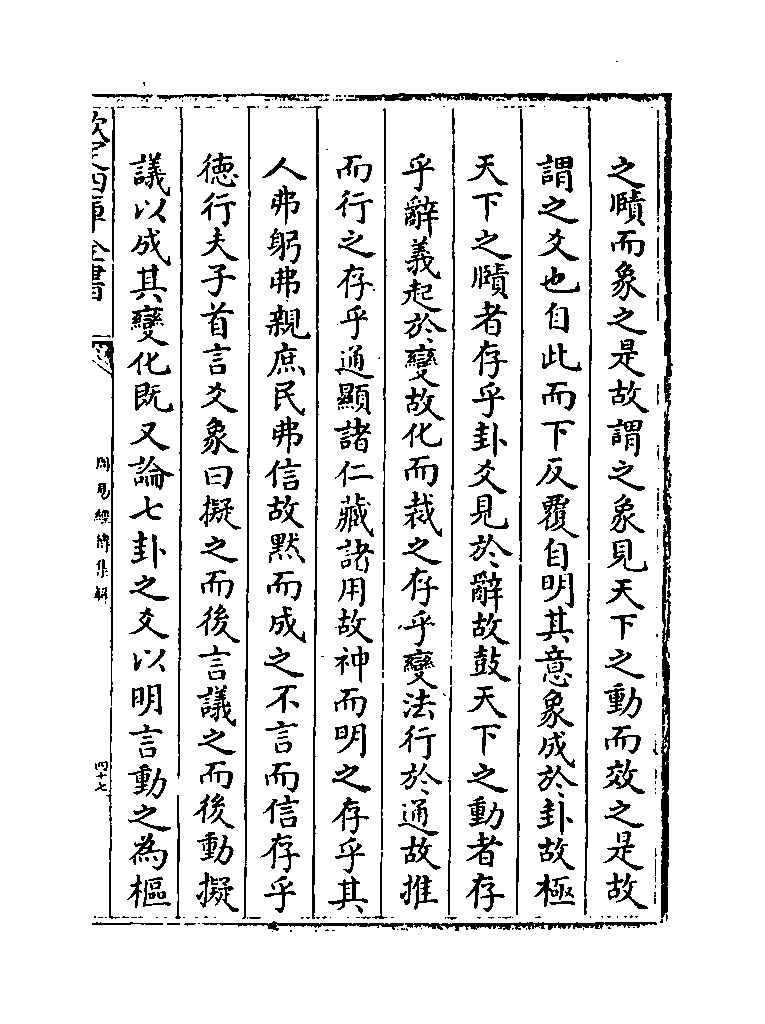 之賾而象之是故謂之象見天下之動而效之是故
謂之爻也自此而下反覆自明其意象成於卦故極
天下之賾者存乎卦爻見於辭故鼓天下之動者存
乎辭義起於變故化而裁之存乎變法行於通故推
而行之存乎通顯諸仁藏諸用故神而明之存乎其
人弗躬弗親庶民弗信故黙而成之不言而信存乎
徳行夫子首言爻象曰擬之而後言議之而後動擬
議以成其變化既又論七卦之爻以明言動之為樞
欽定四庫全書
周易經傳集解
四十七